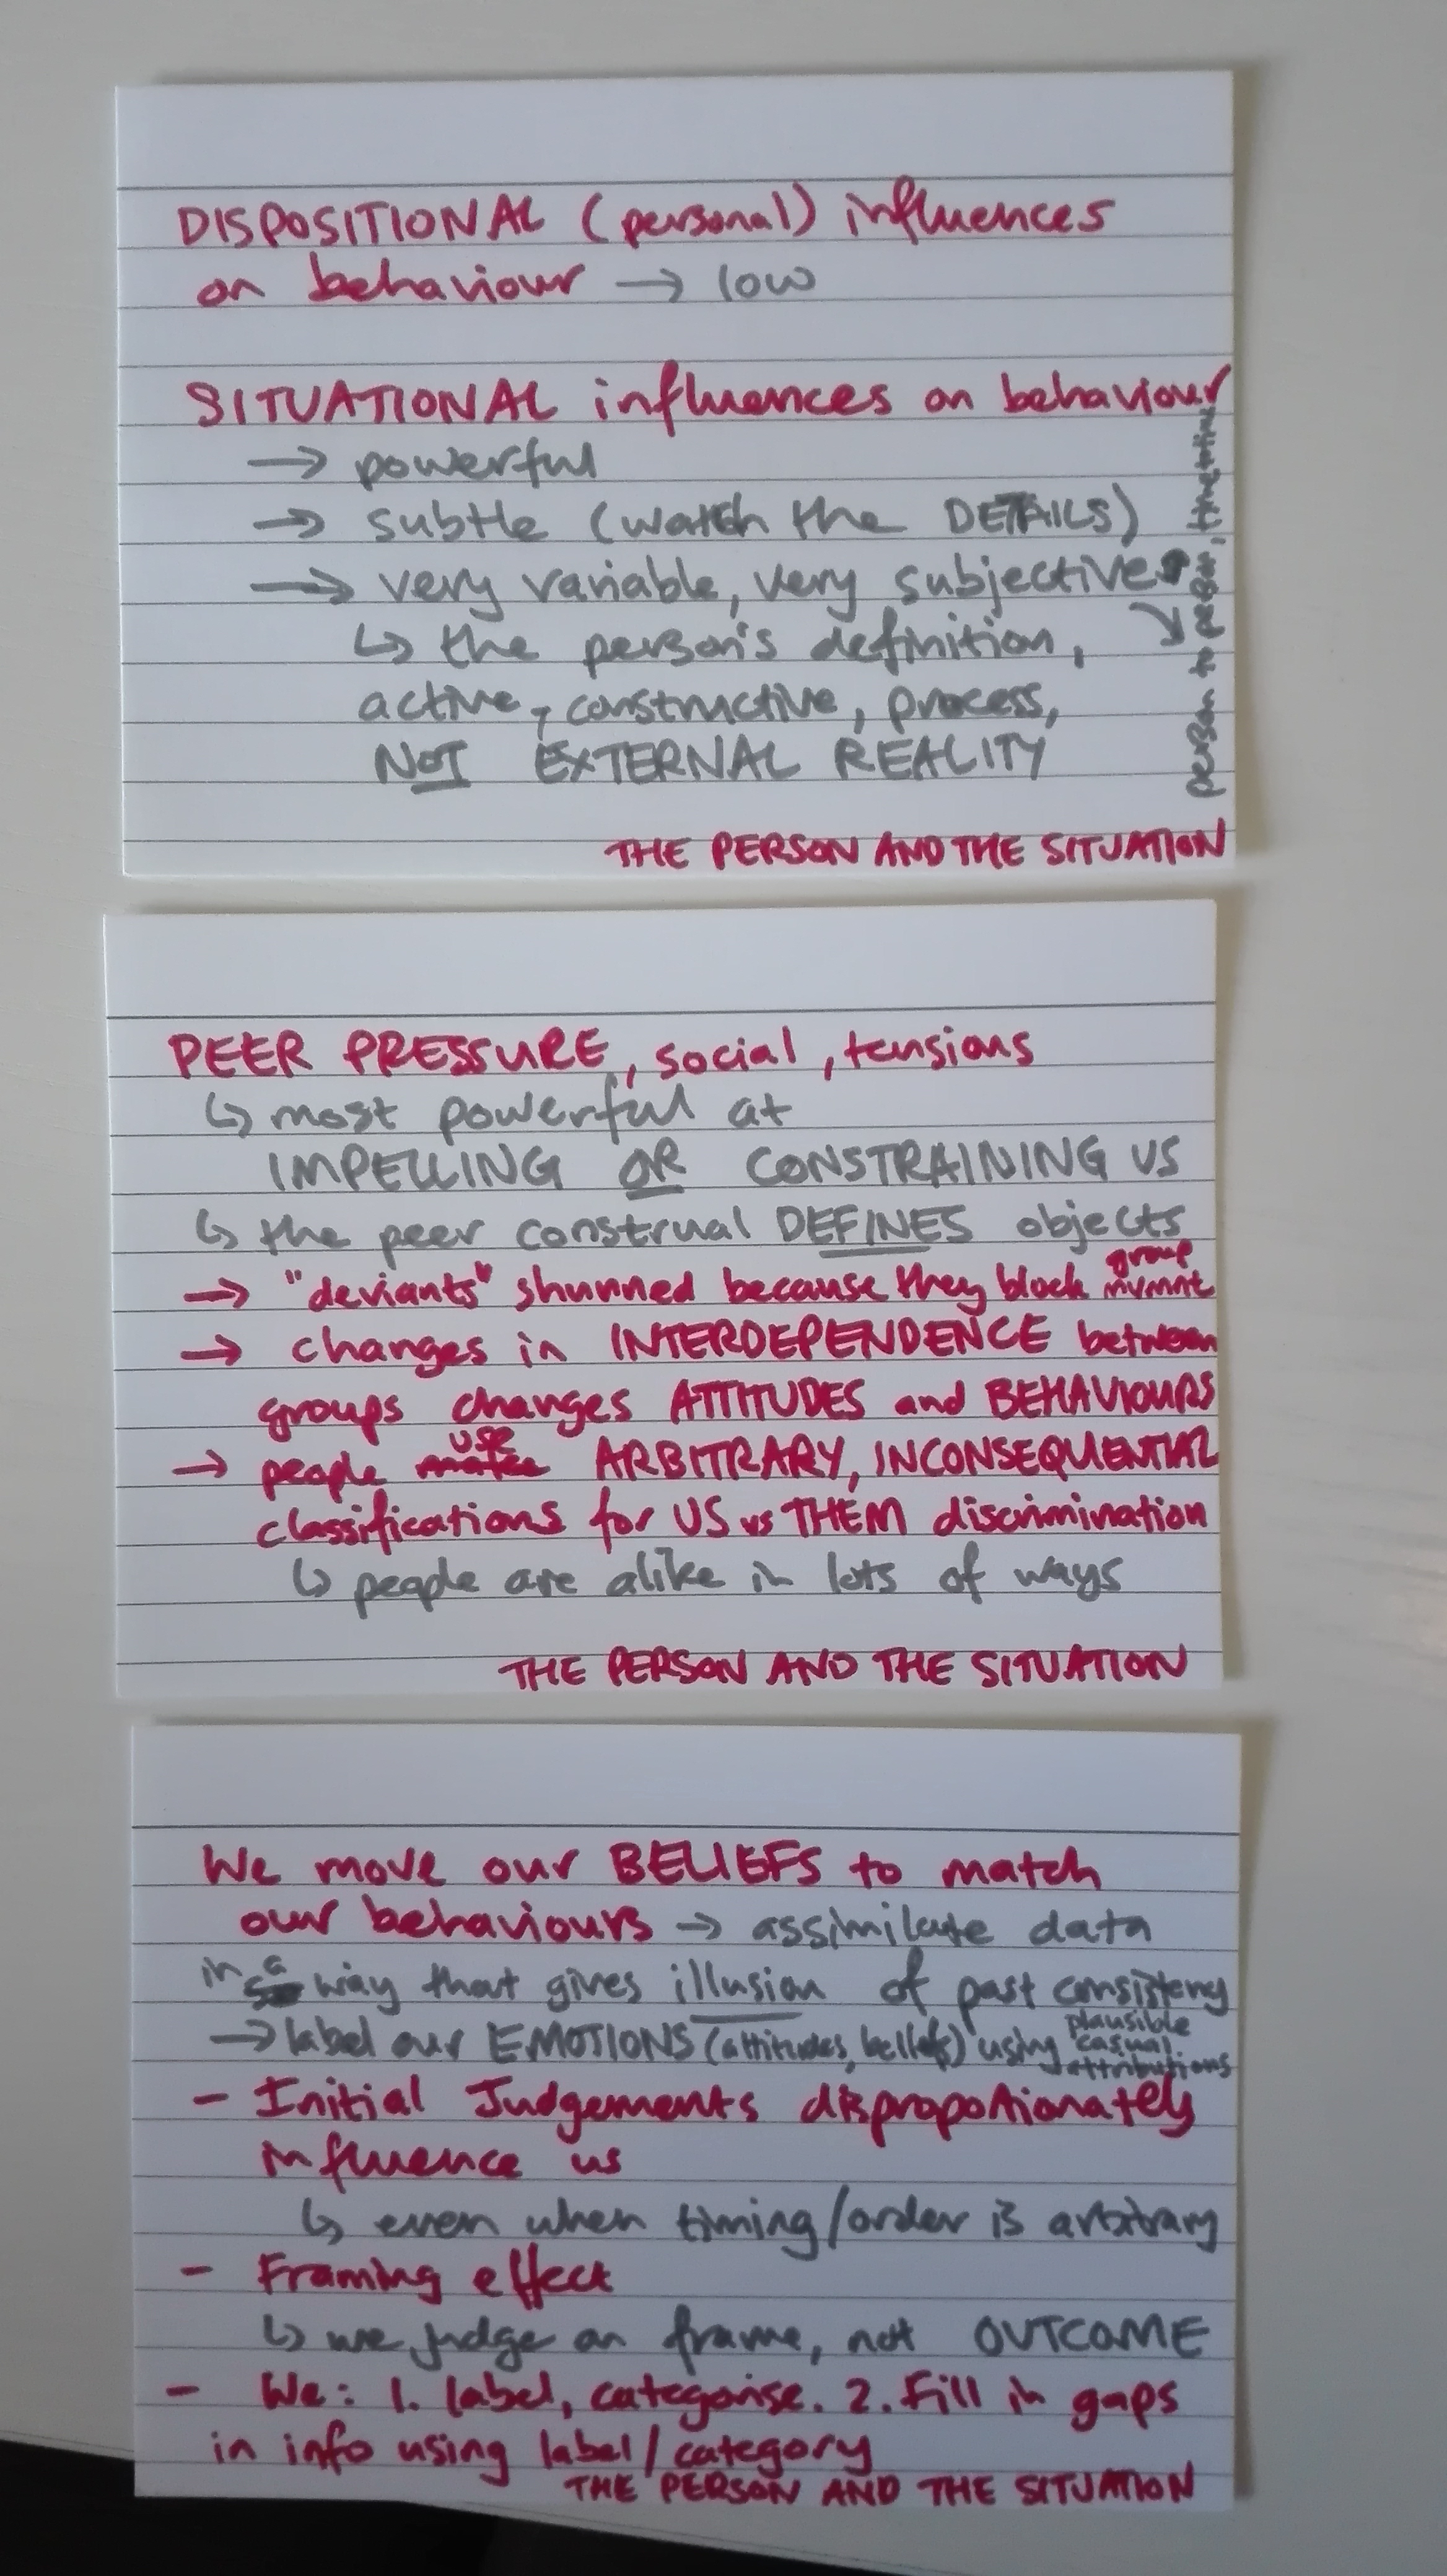 DISPOSITIONAL (personal) influences
on behaviour → low
SITUATIONAL influences on behaviour
→ powerful
→ subtle (watch the DETAILS)
→ very variable, very subjective
person to person, time to time
↳ the person's definition,
active, constructive, process,
NOT EXTERNAL REALITY
THE PERSON AND THE SITUATION
PEER PRESSURE, social, tensions
↳ most powerful at
IMPELLING OR CONSTRAINING US
↳ the peer construal DEFINES objects
→ "deviants" shunned because they block group mvmnt
→ changes in INTERDEPENDENCE between
groups changes ATTITUDES and BEHAVIOURS
→ people use ARBITRARY, INCONSEQUENTIAL
classifications for US vs THEM discrimination
↳ people are alike in lots of ways
THE PERSON AND THE SITUATION
We move our BELIEFS to match
our behaviours → assimilate data
in a way that gives illusion of past consistency
→ label our EMOTIONS (attitudes, beliefs) using plausible casual attributions
- Initial Judgements disproportionately
influence us
↳ even when timing/order is arbitrary
- Framing effect
↳ we judge on frame, not OUTCOME
- We: 1. label, categorise. 2. Fill in gaps
in info using label/category
THE PERSON AND THE SITUATION